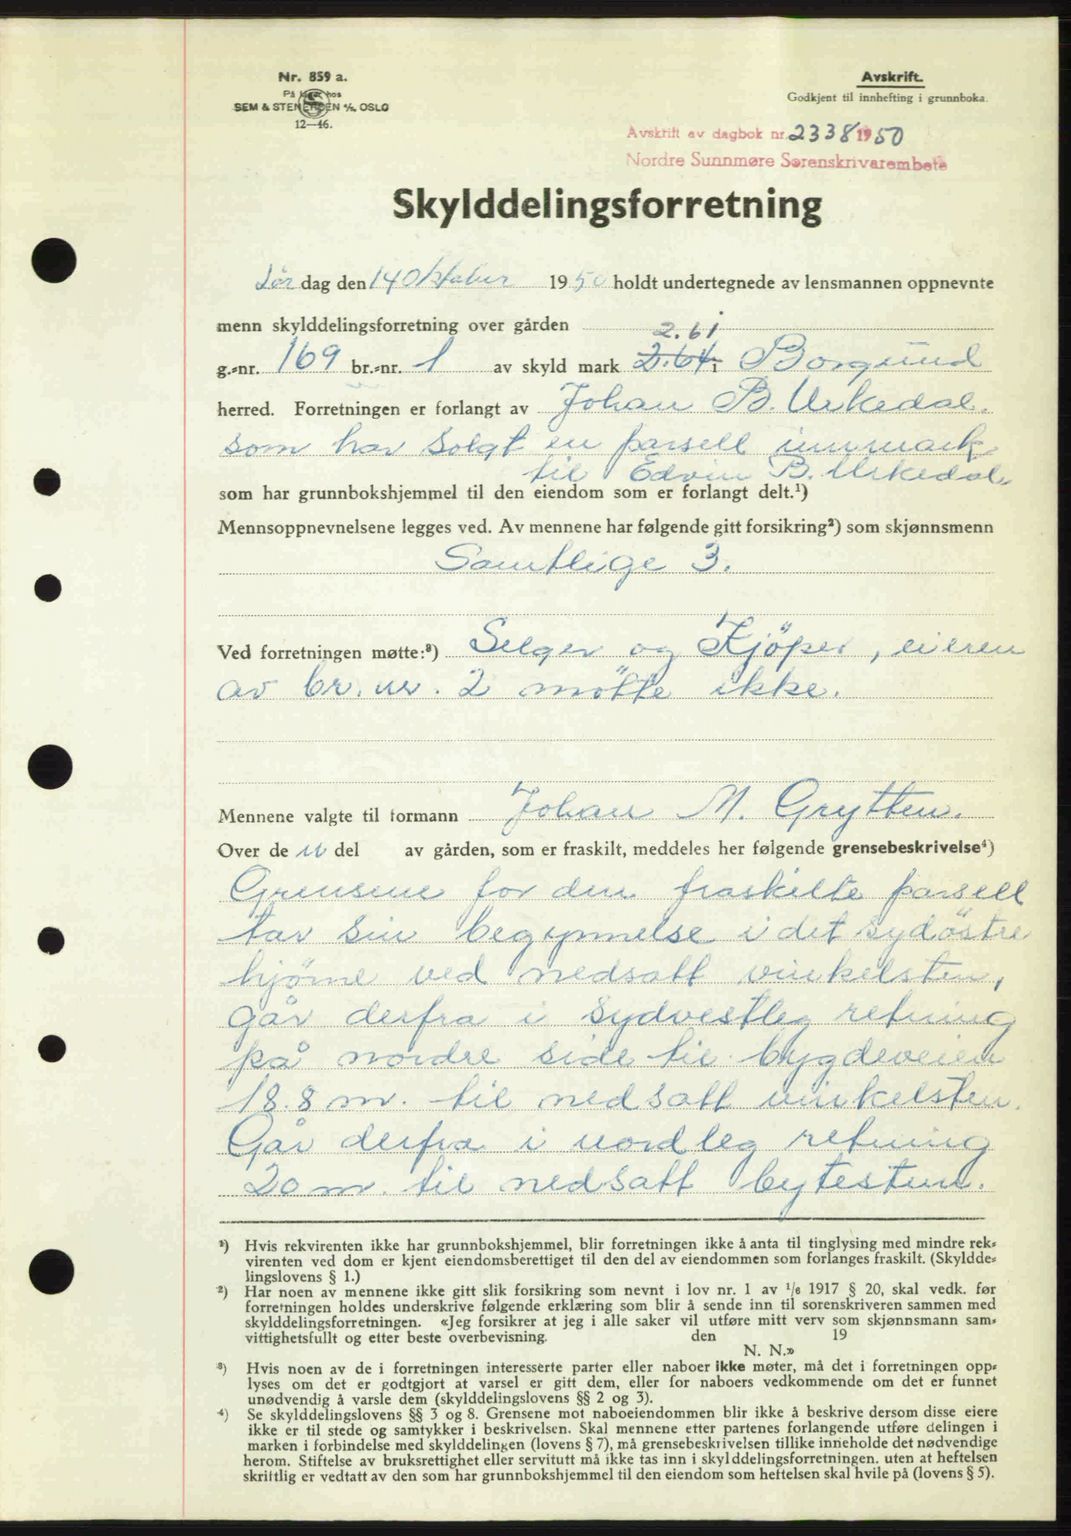 Nr. 859 a.
På lager hos
SEM & STENERSEN A/S, OSLO
12—46.
Avskrift.
Godkjent til innhefting i grunnboka.
Avskrift av dagbok nr. 2338 1950
Nordre Sunnmøre Sorenskrivarembete
Skylddelingsforretning
Lör dag den 14 Oktober 1950 holdt undertegnede av lensmannen oppnevnte
menn skylddelingsforretning over gården
2.61
g.-nr. 169 br.-nr. 1 av skyld mark 2.64 i Borgund
herred. Forretningen er forlangt av Johan B. Urkedal.
som har solgt en parsell innmark
til Edvin B. Urkedal.
som har grunnbokshjemmel til den eiendom som er forlangt delt.¹)
Mennsoppnevnelsene legges ved. Av mennene har følgende gitt forsikring²) som skjønnsmenn
Samtlige 3.
Ved forretningen møtte:³) Selger og Kjöper, eieren
av br. nr. 2 mötte ikke.
Mennene valgte til formann Johan M. Grytten.
Over de n del av gården, som er fraskilt, meddeles her følgende grensebeskrivelse⁴)
Grensene for den fraskilte parsell
tar sin begynnelse i det sydöstre
hjörne ved nedsatt vinkelsten,
går derfra i sydvestleg retning
på nordre side til bygdeveien
18.8 m. til nedsatt vinkelsten.
Går derfra i nordleg retning
20 m. til nedsatt bytesten.
¹) Hvis rekvirenten ikke har grunnbokshjemmel, blir forretningen ikke å anta til tinglysing med mindre rek-
virenten ved dom er kjent eiendomsberettiget til den del av eiendommen som forlanges fraskilt. (Skyldde-
lingslovens § 1.)
²) Har noen av mennene ikke gitt slik forsikring som nevnt i lov nr. 1 av 1/6 1917 § 20, skal vedk. før
forretningen holdes underskrive følgende erklæring som blir å sende inn til sorenskriveren sammen med
skylddelingsforretningen. «Jeg forsikrer at jeg i alle saker vil utføre mitt verv som skjønnsmann sam-
vittighetsfullt og etter beste overbevisning. den 19
N. N.»
³) Hvis noen av de i forretningen interesserte parter eller naboer ikke møter, må det i forretningen opp-
lyses om det er godtgjort at varsel er gitt dem, eller for naboers vedkommende om det er funnet
unødvendig å varsle dem (skylddelingslovens §§ 2 og 3).
⁴) Se skylddelingslovens §§ 3 og 8. Grensene mot naboeiendommen blir ikke å beskrive dersom disse eiere
ikke er til stede og samtykker i beskrivelsen. Skal mennene etter partenes forlangende utføre delingen i
marken i forbindelse med skylddelingen (lovens § 7), må grensebeskrivelsen tillike inneholde det nødvendige
herom. Stiftelse av bruksrettighet eller servitutt må ikke tas inn i skylddelingsforretningen, uten at heftelsen
skriftlig er vedtatt av den som har grunnbokshjemmel til den eiendom som heftelsen skal hvile på (lovens § 5).